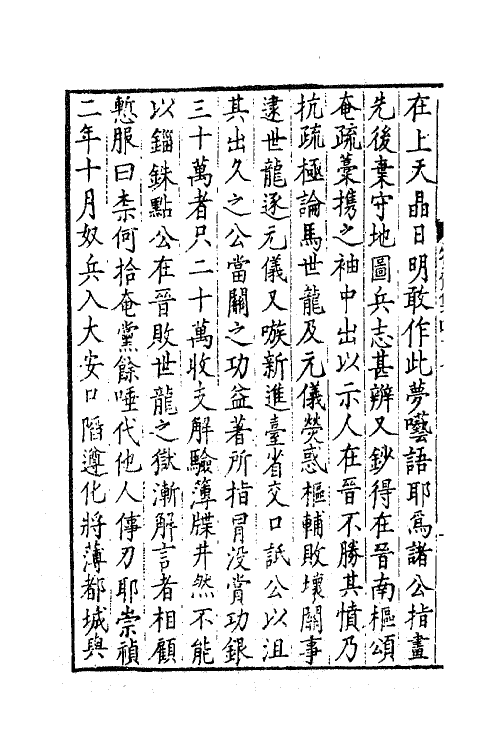 在上天晶日明敢作此夢囈語耶爲諸公指畫
先後棄守地圖兵志甚辨又鈔得在晉南樞頌
奄疏藳攜之袖中出以示人在晉不勝其憤乃
抗疏極論馬世龍及元儀熒惑樞輔敗壞關事
逮世龍逐元儀又嗾新進臺省交口詆公以沮
其出久之公當關之功益著所指冒没賞功銀
三十萬者只二十萬收支解驗簿牒井然不能
以錙銖點公在晉敗世龍之獄漸解言者相顧
慙服曰柰何拾奄黨餘唾代他人倳刃耶崇禎
二年十月奴兵入大安口陷遵化將薄都城與